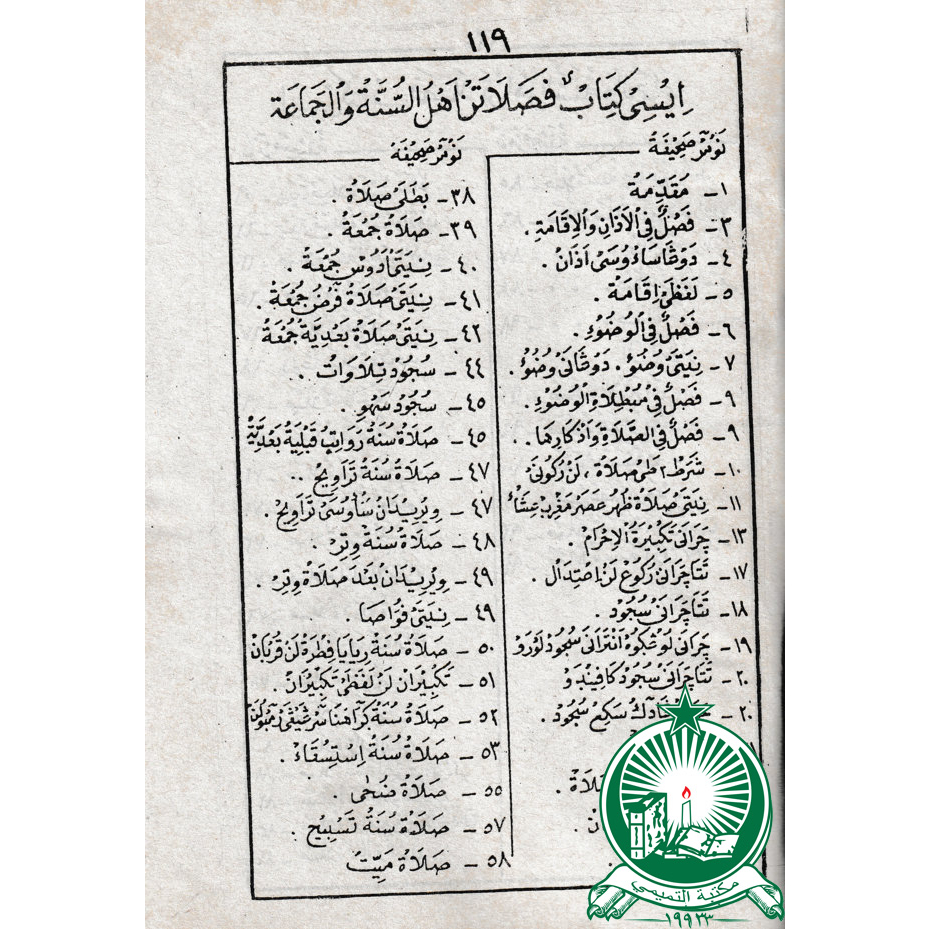 ١١٩
اِيْسِيْ كِتَابْ فَصَلَاتَنْ اَهْلُ السُّنَّةْ وَالْجَمَاعَة
نَوْمَرْ صَحِيْفَةْ
١ - مُقَدِّمَةْ
٣ - فَصْلٌ فِى الْاَذَانِ وَالْاِقَامَةِ .
٤ - دَوْڠَا سَاءْ وُسَىْ اَذَانْ .
٥ - لَفَظَىْ اِقَامَةْ .
٦ - فَصْلٌ فِى الْوُضُوْءِ .
٧ - نِيَتَىْ وُضُوْءْ . دَوْڠَانَىْ وُضُوْءْ .
٩ - فَصْلٌ فِىْ مُبْطِلَاةِ الْوُضُوْءِ .
٩ - فَصْلٌ فِى الصَّلَاةِ وَاَذْكَارِهَا . .
١٠ - شَرَطْ ٢ طَىْ صَلَاةْ ، لَنْ رُكُوْنَىْ
١١ - نِيَتَىْ صَلَاةْ ظُهُرْ عَصَرْ مَغْرِبْ عِشَاءْ
١٣ - چَرَانَىْ تَكْبِيْرَةُ الْاِحْرَامْ .
١٧ - تَتَاچَرَانَىْ رُكُوْعْ لَنْ اِعْتِدَالْ .
١٨ - تَتَاچَرَانَىْ سُجُوْدْ .
١٩ - چَرَانَىْ لَوْڠْكُوْهْ اَنْتَرَانَىْ سُجُوْدْ لَوْرَوْ
٢٠ - تَتَاچَرَانَىْ سُجُوْدْ كَافِيْنْدَوْ
٢٠ - سَكِعْ سُجُوْدْ .
صَلَاةْ .
نَوْمَرْ صَحِيْفَةْ
٣٨ - بَطَلَىْ صَلَاةْ .
٣٩ - صَلَاةْ جُمُعَةْ .
٤٠ - نِيَتَىْ اَدُوْسْ جُمُعَةْ .
٤١ - نِيَتَىْ صَلَاةْ فَرْضُ جُمُعَةْ .
٤٢ - نِيَتَىْ صَلَاةْ بَعْدِيَّةْ جُمُعَةْ
٤٤ - سُجُوْدْ تِلَاوَاتْ . .
٤٥ - سُجُوْدْ سَهْوِ .
٤٥ - صَلَاةْ سُنَةْ رَوَاتِبْ قَبْلِيَةْ بَعْدِيَّةْ
٤٧ - صَلَاةْ سُنَةْ تَرَاوِيْحْ . .
٤٧ - وِيْرِيْدَانْ سَاْوُسَىْ تَرَاوِيْحْ .
٤٨ - صَلَاةْ سُنَةْ وِتِرْ .
٤٩ - وِيْرِيْدَانْ بَعْدَ صَلَاةْ وِتِرْ .
٤٩ - نِيَتَىْ فُوَاصَا .
٥٠ - صَلَاةْ سُنَةْ رِيَايَا فِطْرَةْ لَنْ قُرْبَانْ
٥١ - تَكْبِيْرَانْ لَنْ لَفَظَىْ تَكْبِيْرَانْ .
٥٢ - صَلَاةْ سُنَةْ كَرَاهْنَا
٥٣ - صَلَاةْ سُنَةْ اِسْتِسْقَاءْ .
٥٥ - صَلَاةْ ضُحٰى .
٥٧ - صَلَاةْ سُنَةْ تَسْبِيْحْ .
٥٨ - صَلَاةْ مَيِّتْ
مكتبة التميمي
١٩٩٣٣